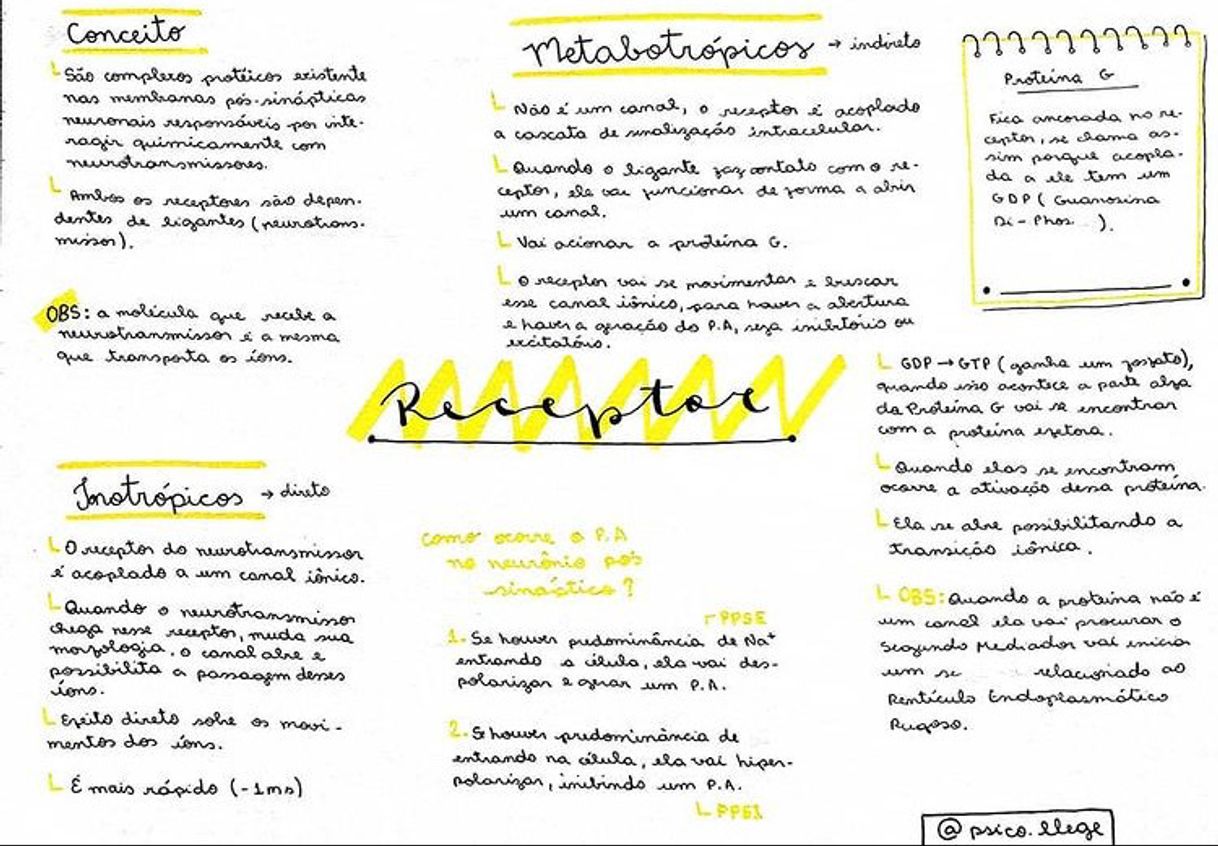 Conceito
São complexos protéicos existente
nas membranas pós-sinápticas
neuronais responsáveis por inte-
ragir quimicamente com
neurotransmissores.
Ambos os receptores são depen-
dentes de ligantes (neurotrans-
missor).
OBS: a molécula que recebe a
neurotransmissor é a mesma
que transporta os íons.
Inotrópicos → direto
O receptor do neurotransmissor
é acoplado a um canal iônico.
Quando o neurotransmissor
chega nesse receptor, muda sua
morfologia, o canal abre e
possibilita a passagem desses
íons.
Efeito direto sobre os movi-
mentos dos íons.
É mais rápido (-1ms)
Metabotrópicos → indireto
Não é um canal, o receptor é acoplado
a cascata de sinalização intracelular.
Quando o ligante faz contato com o re-
ceptor, ele vai funcionar de forma a abrir
um canal.
Vai acionar a proteína G.
O receptor vai se movimentar e buscar
esse canal iônico, para haver a abertura
e haver a geração do P.A, seja inibitório ou
excitatório.
Receptor
como ocorre o P.A
no neurônio pós
sináptico?
PPSE
1. Se houver predominância de Na⁺
entrando a célula, ela vai des-
polarizar e gerar um P.A.
2. Se houver predominância de
entrando na célula, ela vai hiper-
polarizar, inibindo um P.A.
PPSI
Proteína G
Fica ancorada no re-
ceptor, se chama as-
sim porque acopla-
da a ele tem um
GDP (Guanosina
Di-Phos ).
GDP → GTP (ganha um fosfato),
quando isso acontece a parte alfa
da Proteína G vai se encontrar
com a proteína efetora.
Quando elas se encontram
ocorre a ativação dessa proteína.
Ela se abre possibilitando a
transição iônica.
OBS: Quando a proteína não é
um canal ela vai procurar o
Segundo Mediador vai iniciar
um se relacionado ao
Rentículo Endoplasmático
Rugoso.
@psico.llege